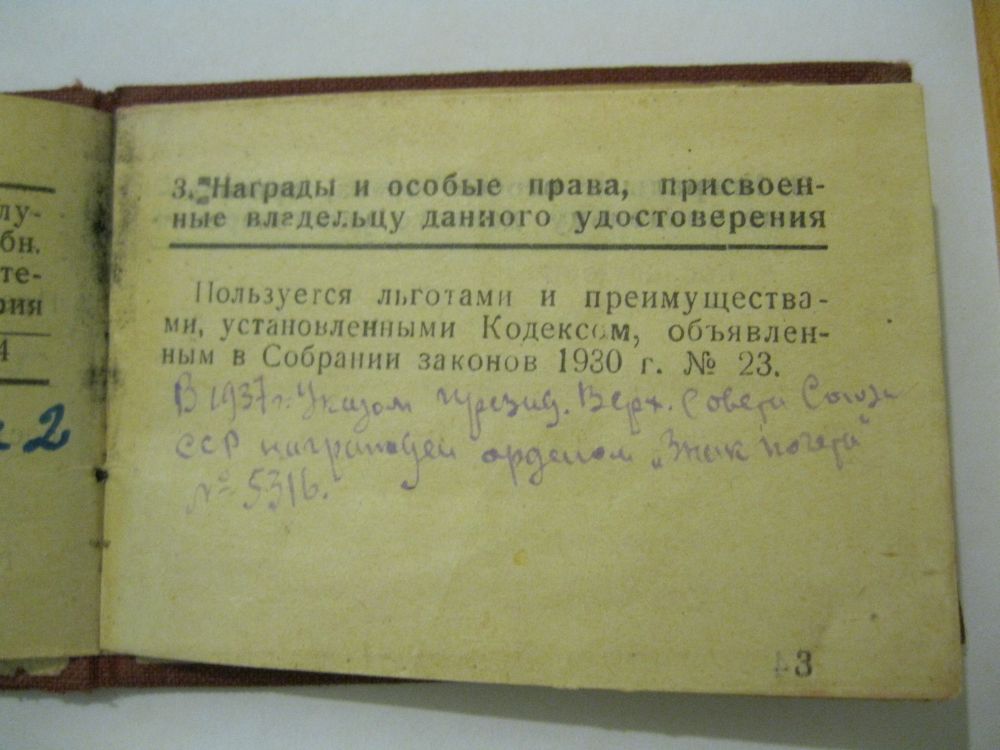 лу-
бн.
те-
рия
4
2
3. Награды и особые права, присвоен-
ные владельцу данного удостоверения
Пользуется льготами и преимущества-
ми, установленными Кодексом, объявлен-
ным в Собрании законов 1930 г. № 23.
В 1937 г. Указом Презид. Верх. Совета Союза
ССР награжден орденом „Знак почета"
№ 5316.
3